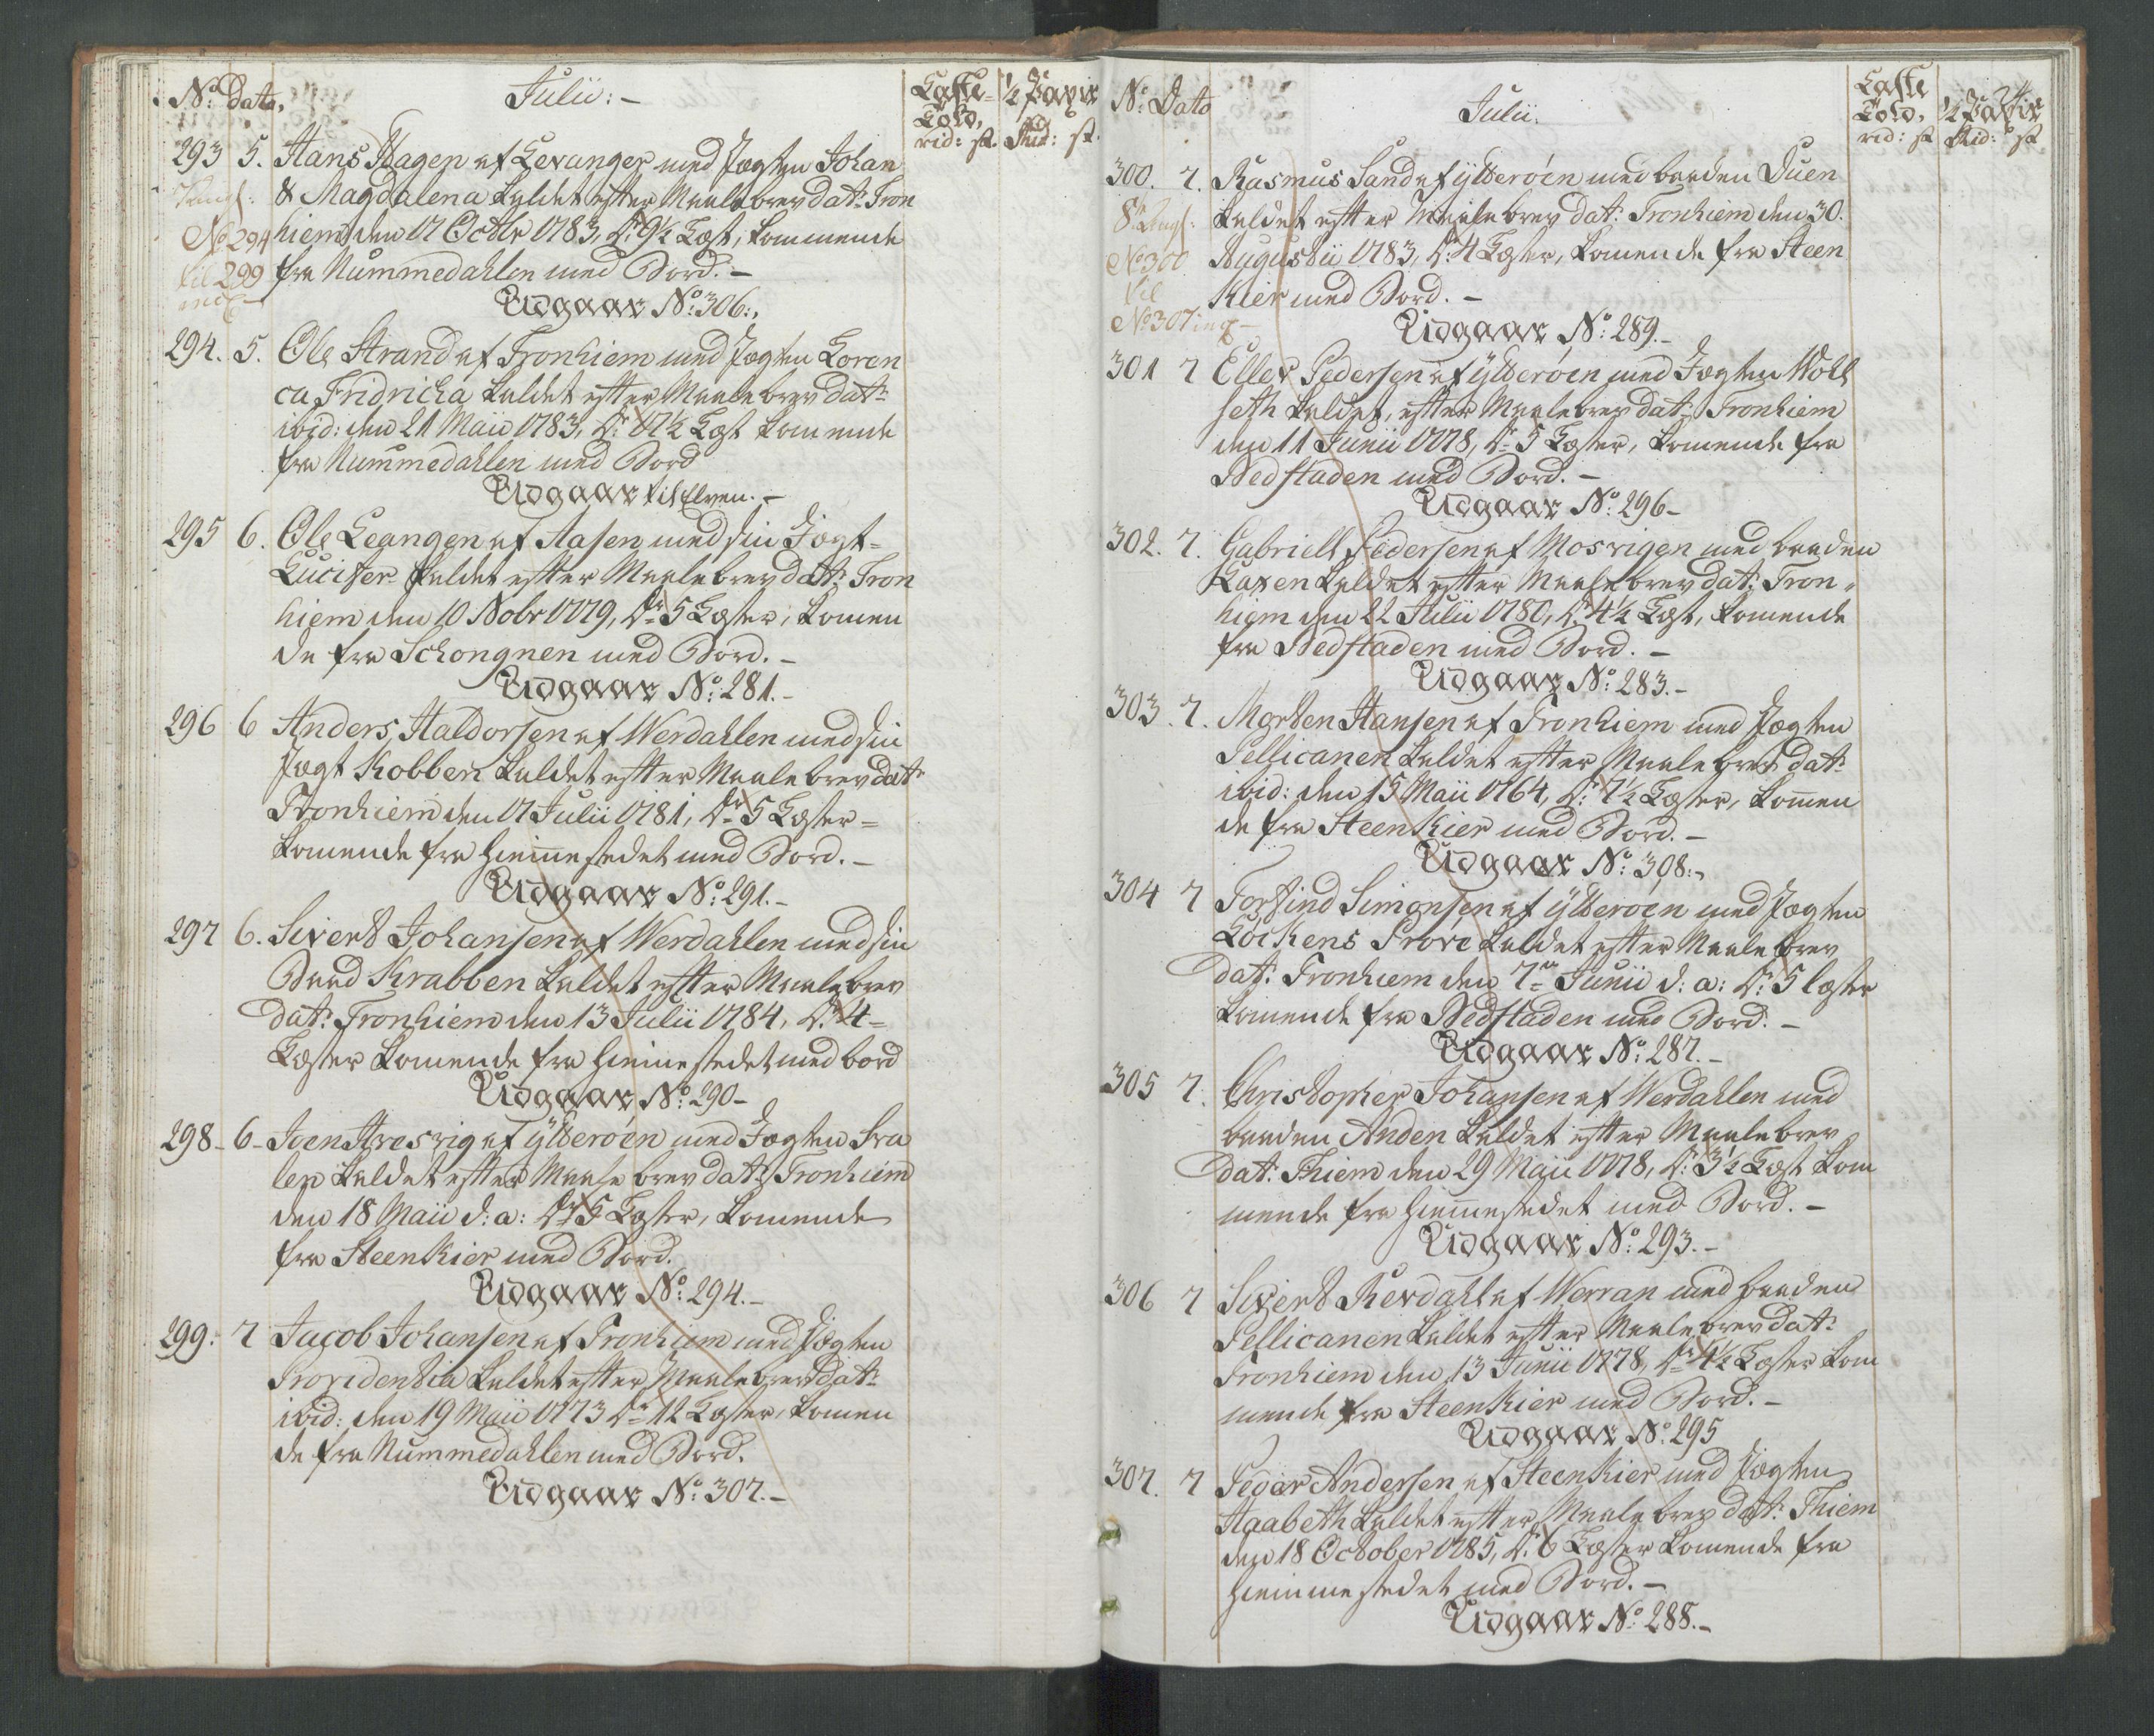 No: Dato,
Julii: -
Laste
Told,
rd: s.
½ Pavir
Rid: s.
293 5. Hans Hagen af Levanger med Jægten Johan
& Magdalena kaldet efter Maalebrev dat: Tron
hiem den 17 Octbr 1783, Dr: 9½ Læst, kommende
fra Nummedahlen med Bord. -
No 294
til 299
incl
Udgaar No: 306:,
294. 5. Ole Strand af Tronhiem med Jægten Loren
ca Fridricha kaldet efter Maalebrev dat:
ibid: den 21 Maii 1783, Dr: 17½ Læst kommende
fra Nummedahlen med Bord
Udgaar til Elven. -
295 6. Ole Leangen af Aasen med sin Jægt=
Lucifer kaldet efter Maalebrev dat: Tron
hiem den 10 Nobr 1779, Dr 5 Læster, komen
de fra Schongnen med Bord. -
Udgaar No: 281. -
296 6 Anders Haldorsen af Werdahlen med sin
Jægt Kobben kaldet efter Maalebrev dat:
Tronhiem den 17 Julii 1781, Dr 5 Læster=
komende fra Hiemmestedet med Bord. -
Udgaar No: 291. -
297 6. Sivert Johansen af Werdahlen med sin
Baad Krabben kaldet efter Maalebrev
dat: Tronhiem den 13 Julii 1784, Dr: 4=
Læster komende fra Hiemmestedet med bord
Udgaar No: 290 -
298 - 6 - Joen Hresvig af Ytterøen med Jægten Sva
len kaldet efter Maale brev dat: Tronhiem
den 18 Maii d: a: Dr 5 Læster, komende
fra Steenkier med Bord.
Udgaar No: 294. -
299: 7 Jacob Johansen af Tronhiem med Jægten
Providentia kaldet efter Maalebrev dat:
ibid: den 19 Maii 1773 Dr 12 Læster, komen
de fra Nummedahlen med Bord.
Udgaar No: 307. -
No: Dato
Julii.
Laste
Told,
rd: s
½ Pavir
Rid: s
24
300. 7. Rasmus Sand af Ytterøen med baaden Duen
kaldet efter Maalebrev dat: Tronhiem den 30.
Augustii 1783, Dr: 4 Læster, komende fra Steen
kier med Bord. -
No 300
til
No 307 incl -
Udgaar No: 289. -
301 7 Eller Pedersen af Ytterøen med Jægten Woll
seth kaldet, efter Maalebrev dat: Tronhiem
den 11 Junii 1778, Dr 5 Læster, komende fra
Bedstaden med Bord. -
Udgaar No: 296 -
302. 7. Gabriell Pedersen af Mosvigen med baaden
Laxen kaldet efter Maalebrev dat: Tron„
hiem den 22 Julii 1780, Dr: 4½ Læst, komende
fra Bedstaden med Bord. -
Udgaar No: 283. -
303. 7. Morten Hansen af Tronhiem med Jægten
Pellicanen kaldet efter Maalebrev dat:
ibid: den 15 Maii 1764, Dr: 7½ Læster, komen
de fra Steenkier med Bord. -
Udgaar No: 308:,
304 7 Torfind Simonsen af Ytterøen med Jægten
Løckens Prøve kaldet efter Maalebrev
dat: Tronhiem den 7de Junii d: a: Dr: 5 læster
komende fra Bedstaden med Bord. -
Udgaar No: 287. -
305 7. Christopher Johansen af Werdahlen med
baaden Anden kaldet efter Maalebrev
dat: Thiem den 29 Maii 1778, Dr: 3½ Læst kom
mende fra Hiemmestedet med Bord. -
Udgaar No: 293. -
306 7 Sivert Kierdahl af Werran med baaden
Pellicanen kaldet efter Maalebrev dat:
Tronhiem den 13 Junii 1778, Dr 4½ Læster kom
mende fra Steenkier med Bord. -
Udgaar No: 295
307. 7 Peder Andersen af Steenkier med Jægten
Haabeth kaldet efter Maalebrev dat: Thiem
den 18 October 1785, Dr: 6 Læster komende fra
Hiemmestedet med Bord. -
Udgaar No: 288. -